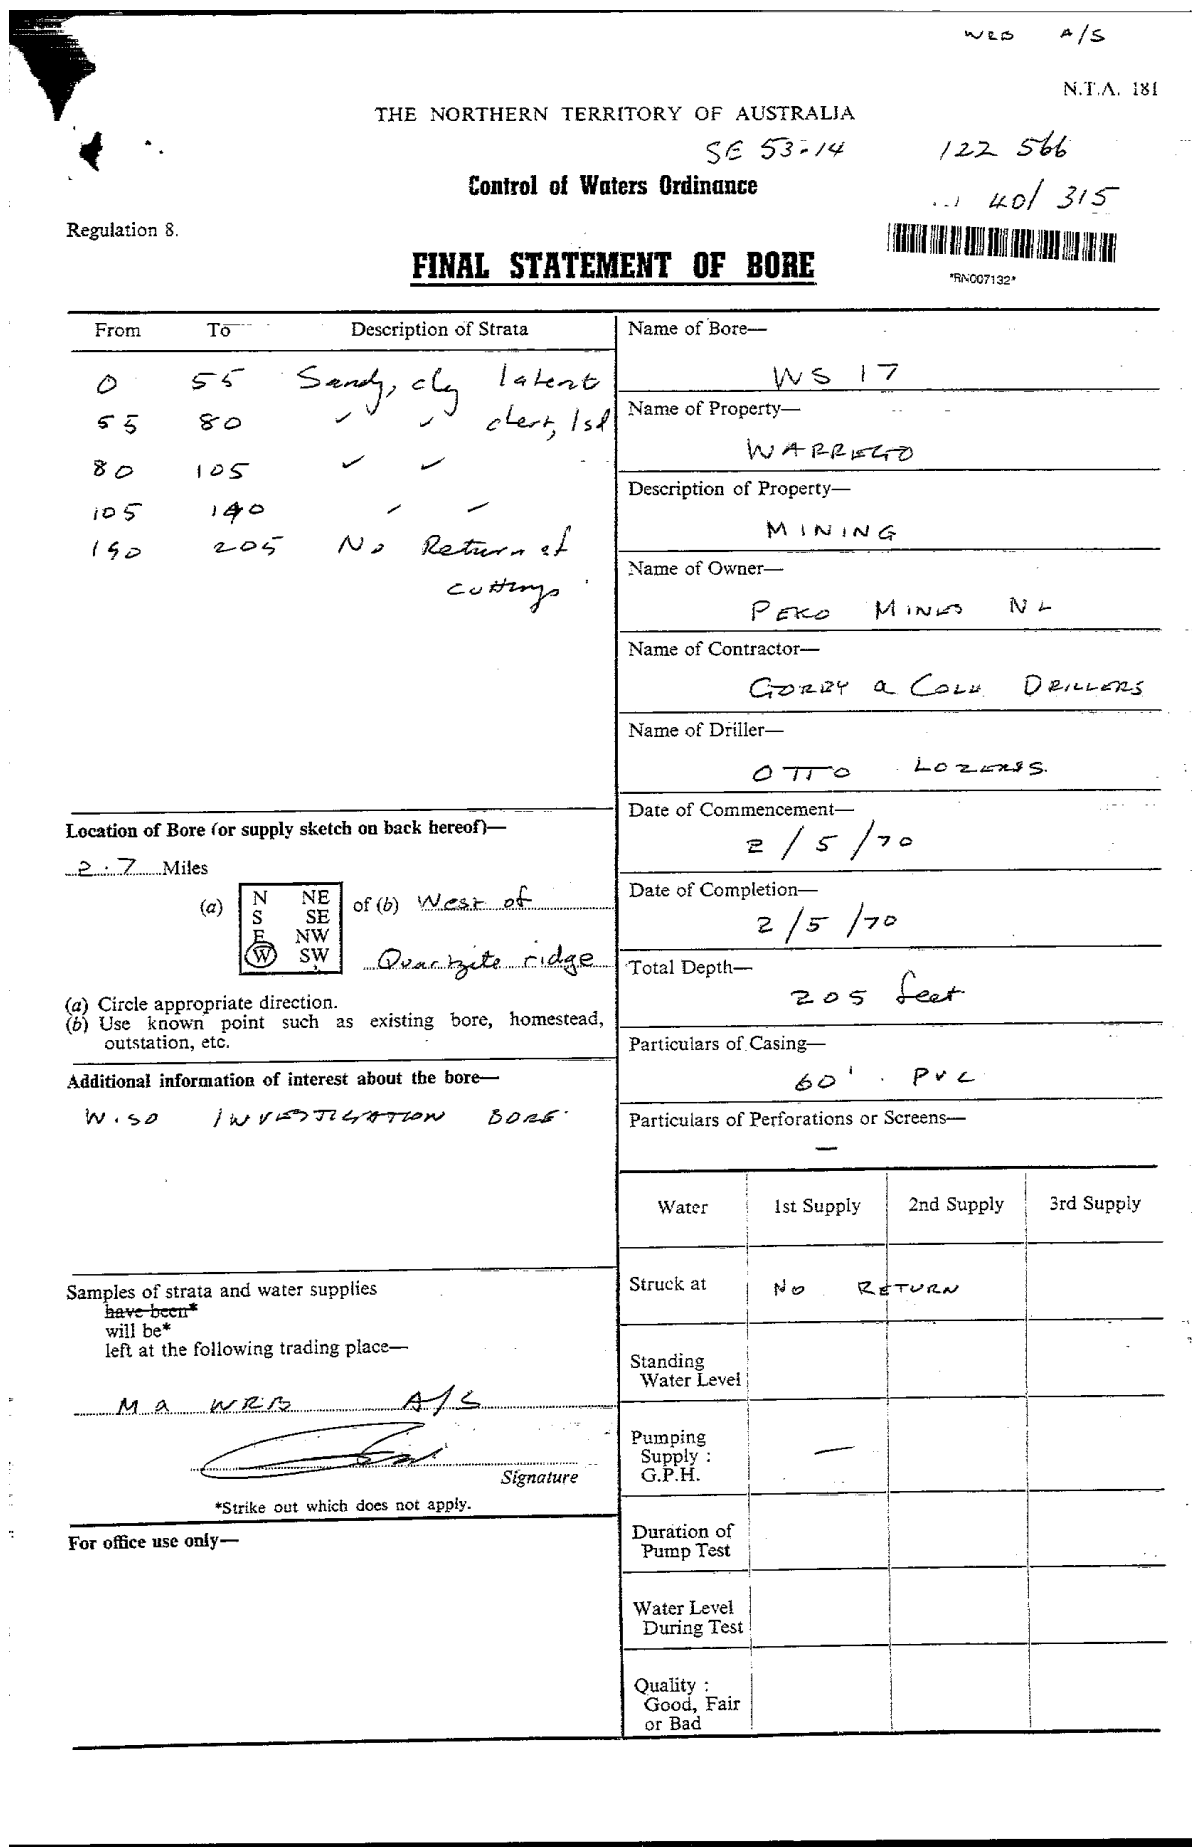 WRB A/S
N.T.A. 181
THE NORTHERN TERRITORY OF AUSTRALIA
SE 53-14 122 566
Control of Waters Ordinance
40/315
Regulation 8.
FINAL STATEMENT OF BORE
*RN007132*
From To Description of Strata
0 55 Sandy, cly latent
55 80 ✓ ✓ chert, lst
80 105 ✓ ✓
105 140 ✓ ✓
140 205 No Return of
cuttings
Location of Bore (or supply sketch on back hereof)—
2.7 Miles
(a) N NE of (b) West of
S SE
E NW
W SW Quartzite ridge
(a) Circle appropriate direction.
(b) Use known point such as existing bore, homestead,
outstation, etc.
Additional information of interest about the bore—
W.SO INVESTIGATION BORE
Samples of strata and water supplies
have been*
will be*
left at the following trading place—
M a WRB A/S
Signature
*Strike out which does not apply.
For office use only—
Name of Bore—
WS 17
Name of Property—
WARREGO
Description of Property—
MINING
Name of Owner—
PEKO MINES NL
Name of Contractor—
GORBY a COLE DRILLERS
Name of Driller—
OTTO
Date of Commencement—
2/5/70
Date of Completion—
2/5/70
Total Depth—
205 feet
Particulars of Casing—
60' PVC
Particulars of Perforations or Screens—
—
Water 1st Supply 2nd Supply 3rd Supply
Struck at NO RETURN
Standing
Water Level
Pumping
Supply : —
G.P.H.
Duration of
Pump Test
Water Level
During Test
Quality :
Good, Fair
or Bad